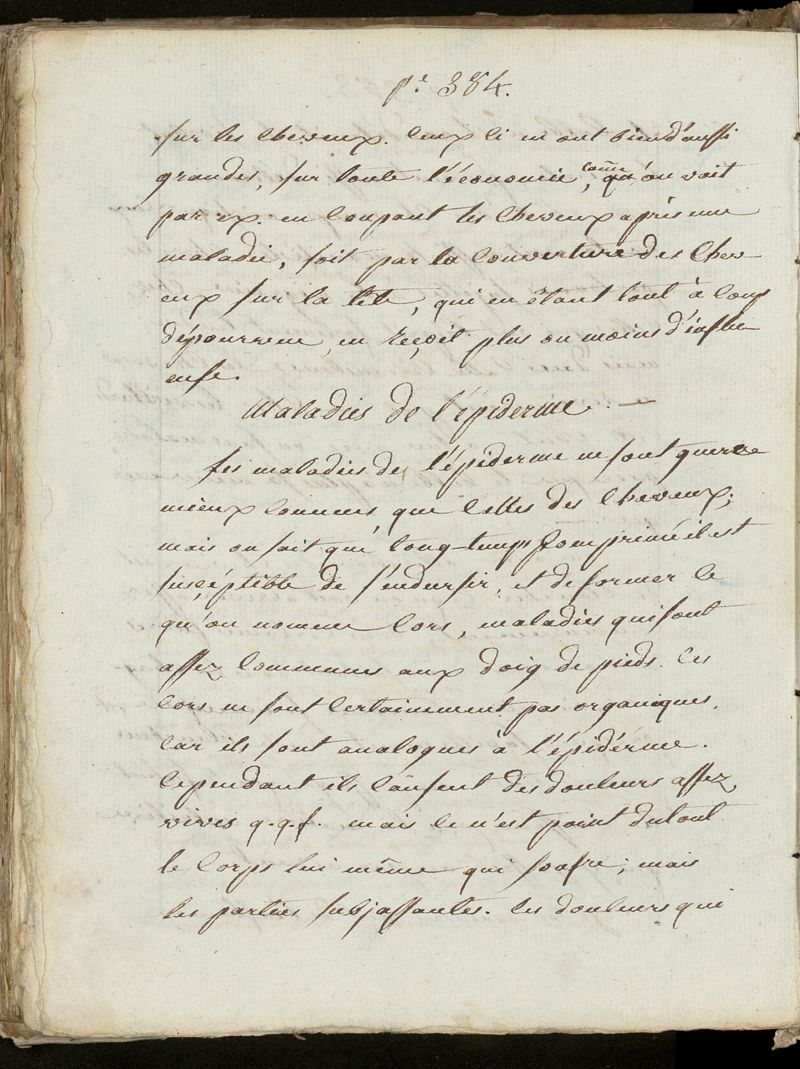 pe. 384.
sur les cheveux. ceux ci en ont bien d'aussi
grandes, sur toute l'économie, come qu'on voit
par ex. en coupant les cheveux après une
maladie, soit par la couverture des chev
eux sur la tête, qui en étant tout à coup
dépourvue, en reçoit plus ou moins d'influ
ense.
Maladies de l'épiderme. —
les maladies de l'épiderme ne sont guere
mieux connues, que celles des cheveux;
mais on sait que long-temps comprimé il est
susçéptible de s'endursir, et de former le
qu'on nomme cors, maladies qui sont
assez communes aux doig de pieds. ces
cors ne sont certainement pas organiques,
car ils sont analogues à l'épidérme.
cependant ils causent des douleurs assez
vives q.q.f. mais ce n'est point du tout
le corps lui même qui soufre; mais
les parties subjassantes. ces douleurs qui